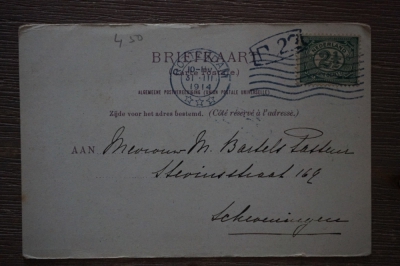 4 50
BRIEFKAART
(Carte Postale)
ALGEMEENE POSTVEREENIGING (UNION POSTALE UNIVERSELLE)
Zijde voor het adres bestemd. (Côté réservé à l'adresse.)
ROTTERDAM
31 III
1914
NEDERLAND
2½
AAN Mevrouw M. Bartels Pasteur
Stevinstraat 169
Scheveningen